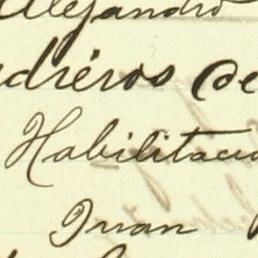 Alejandro
adréros de
Habilitacio
Juan